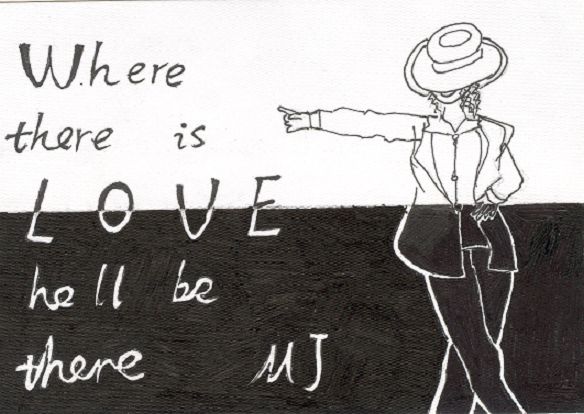 Where
there is
LOVE
he ll be
there MJ